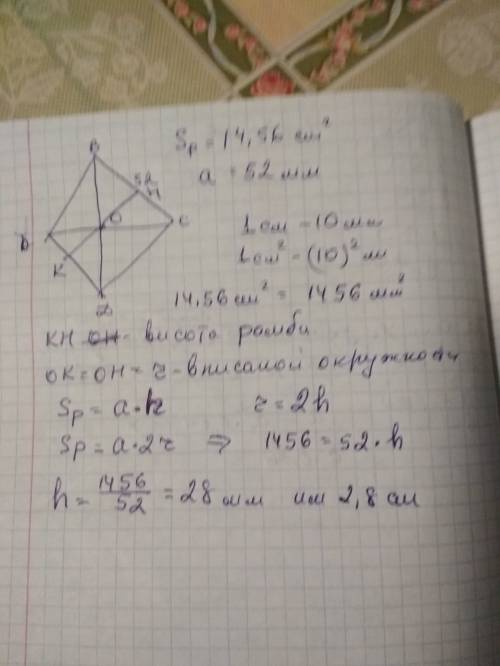 Sр = 14,56 см²
a = 52 мм
B
52
H
O
C
K
D
1 см = 10 мм
1 см² = (10)² м
14,56 см² = 1456 мм²
KH - висота ромби
OK = OH = r - вписаной окружности
Sр = a·h r = 2h
Sр = a·2r ⇒ 1456 = 52·h
h = 1456/52 = 28 мм или 2,8 см